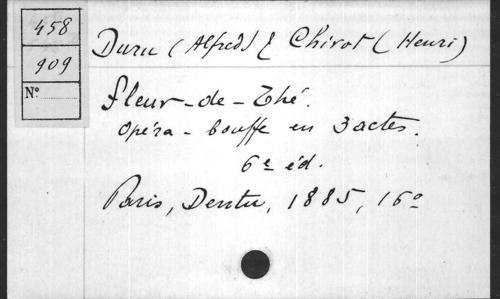 458
909
N°
Duru (Alfred) & Chivot (Henri)
Fleur-de-Thé.
Opéra-bouffe en 3 actes.
6e éd.
Paris, Dentu, 1885, 16°